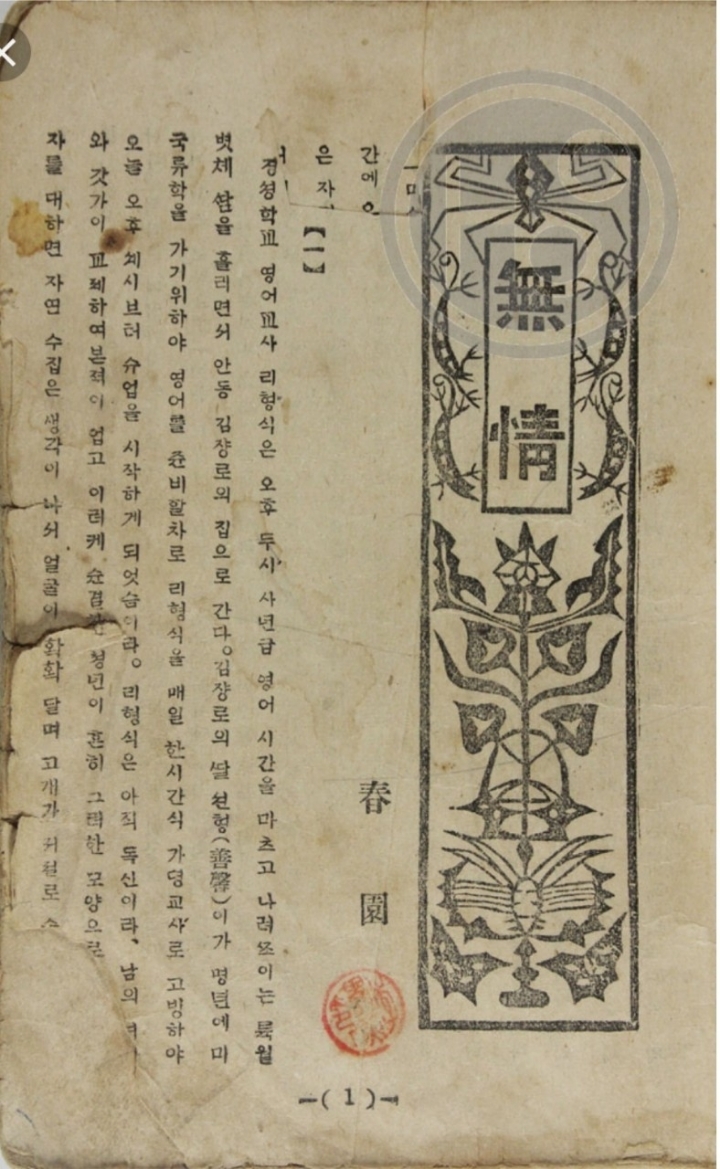 無情
春園
간에
은 자
【一】
경성학교 영어교사 리형식은 오후 두시 사년급 영어 시간을 마츠고 나려ᄶᅩ이는 륙월
볏체 ᄯᅡᆷ을 흘리면서 안동 김쟝로의 집으로 간다。김쟝로의 ᄯᅡᆯ 션형(善馨)이가 명년에 미
국류학을 가기위하야 영어를 쥰비할차로 리형식을 매일 한시간식 가뎡교사로 고빙하야
오늘 오후 세시브터 슈업을 시작하게 되엿슴이라。리형식은 아직 독신이라、남의
와 갓가이 교제하여본적이 업고 이러케 슌결한 청년이 흔히 그러한 모양으로
자를 대하면 자연 수집은 생각이 나서 얼굴이 확확 달며 고개가 저절로
(1)